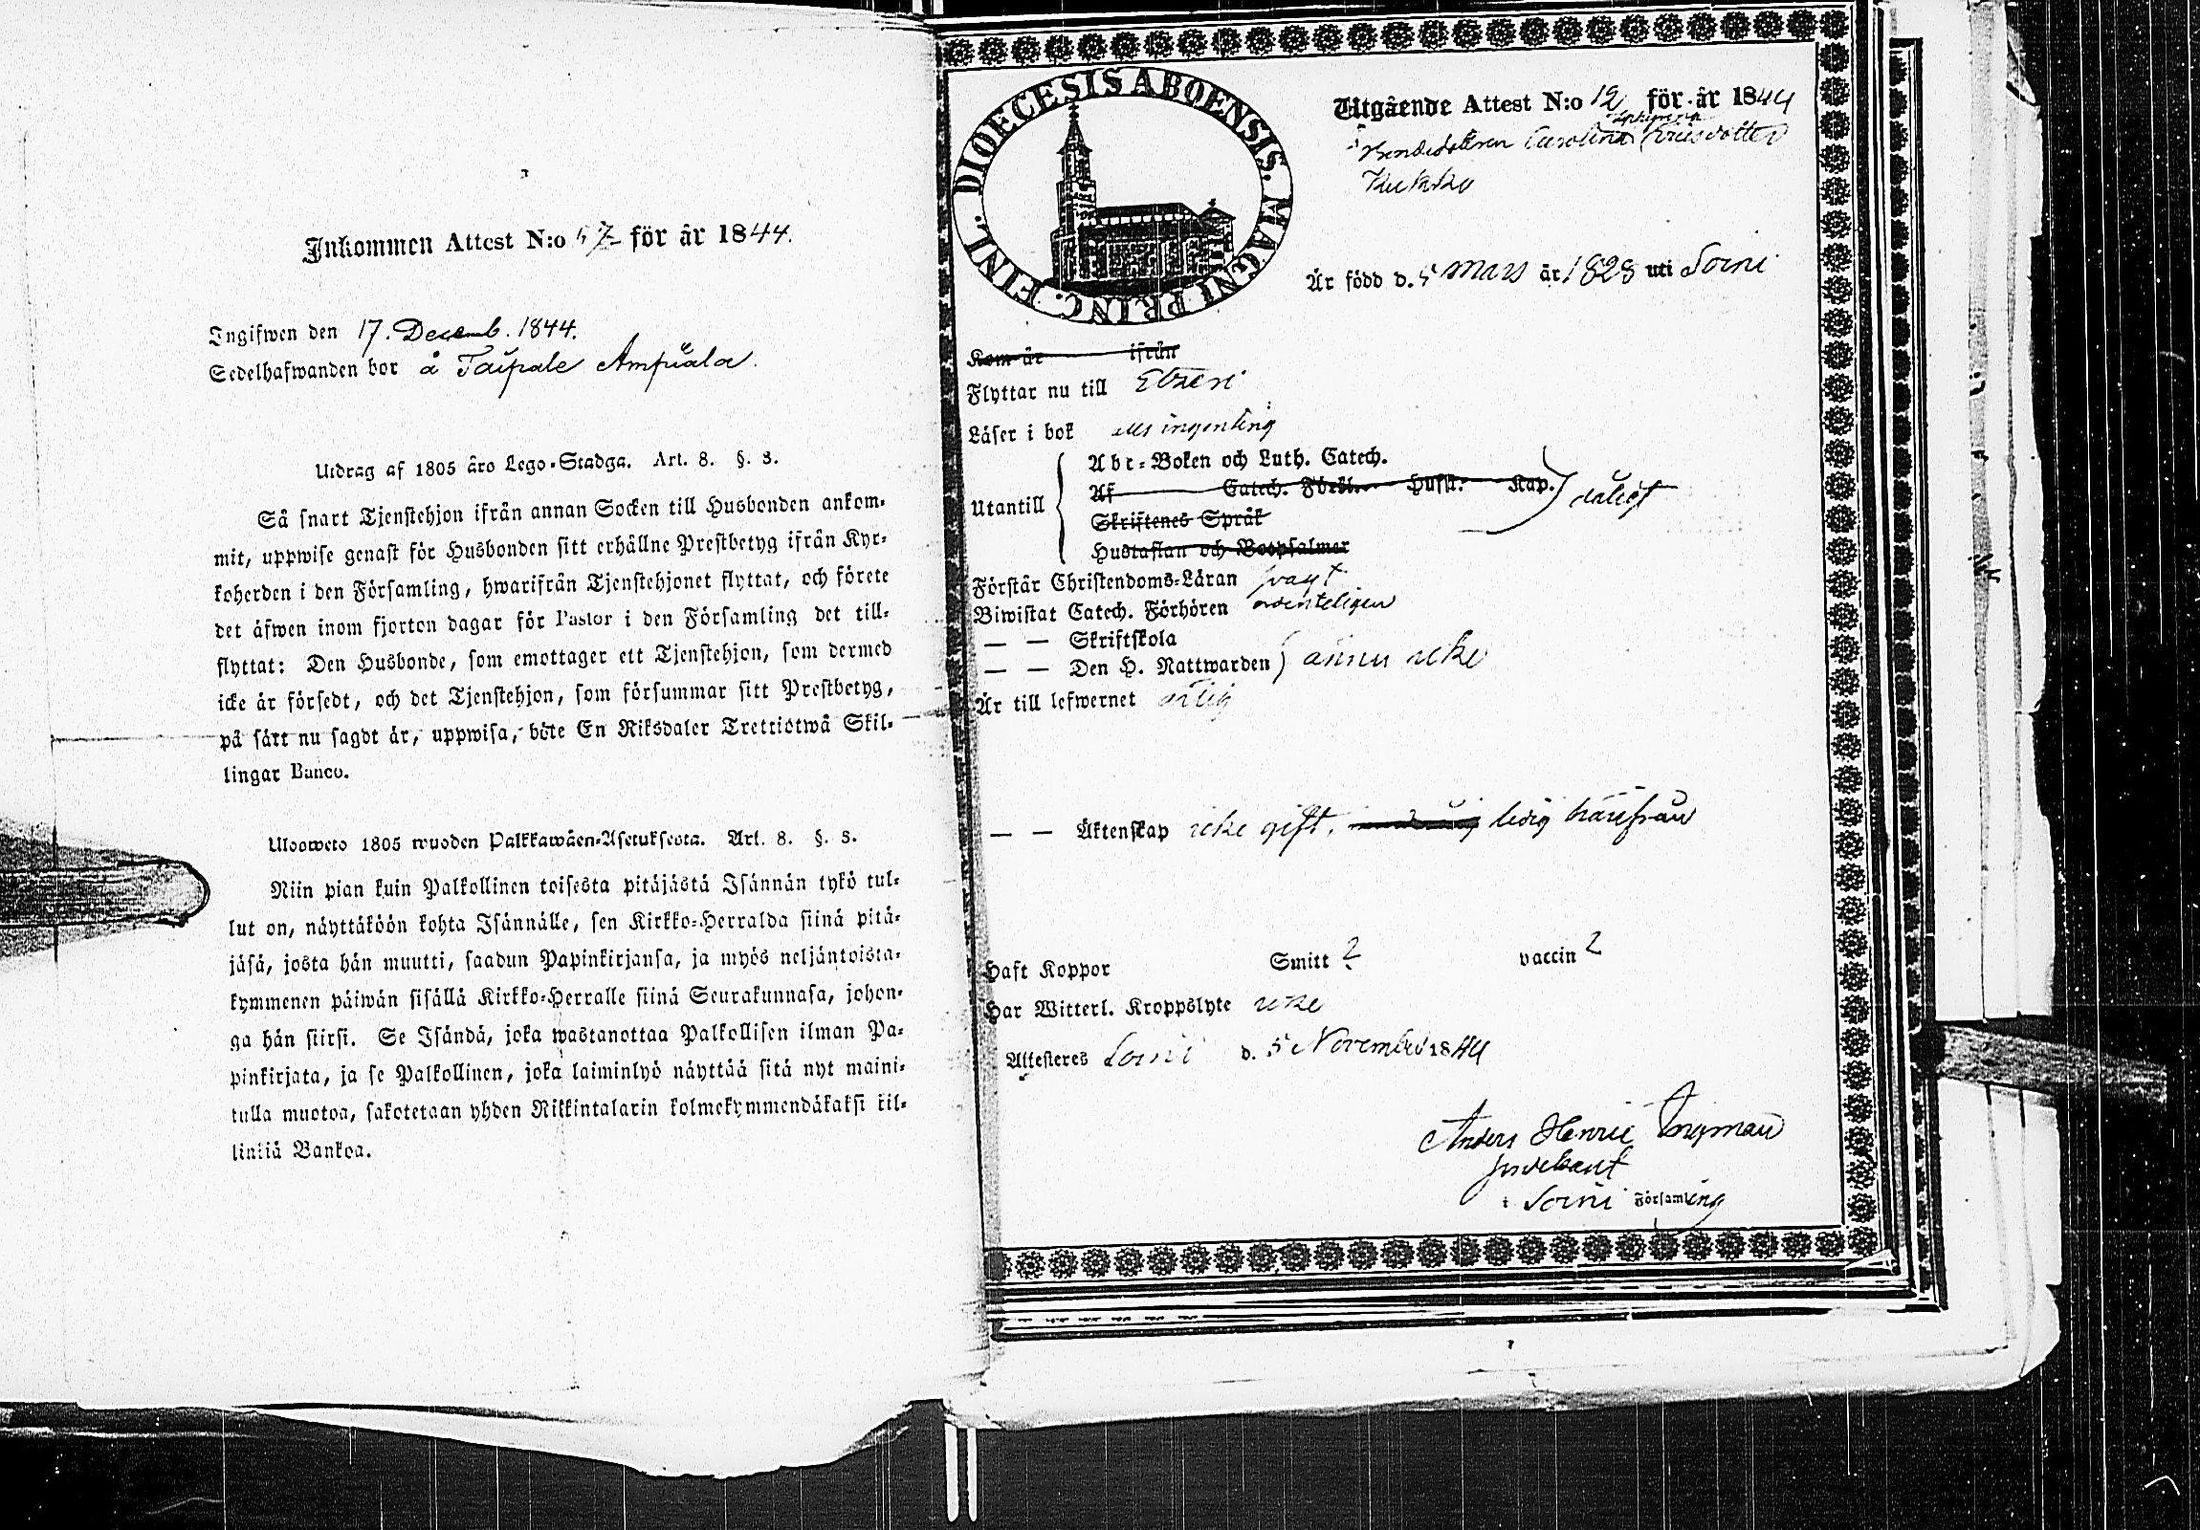 Inkommen Attest N:o 57 för år 1844.
Ingifwen den 17. Decemb. 1844.
Sedelhafwanden bor å Taipale Ampiala.
Utdrag af 1805 åro Lego-Stadga. Art. 8. §. 3.
Så snart Tjenstehjon ifrån annan Socken till Husbonden ankom-
mit, uppwise genast för Husbonden sitt erhållne Prestbetyg ifrån Kyr-
koherden i den Församling, hwarifrån Tjenstehjonet flyttat, och förete
det äfwen inom fjorton dagar för Pastor i den Församling det till-
flyttat: Den Husbonde, som emottager ett Tjenstehjon, som dermed
icke är försedt, och det Tjenstehjon, som försummar sitt Prestbetyg,
på sätt nu sagdt är, uppwisa, böte En Riksdaler Trettiotwå Skil-
lingar Banco.
Ulosweto 1805 wuoden Palkkawäen-Asetuksesta. Art. 8. §. 3.
Niin pian kuin Palkollinen toisesta pitäjästä Isännän tykö tul-
lut on, näyttäköön kohta Isännälle, sen Kirkko-Herralda siinä pitä-
jäsä, josta hän muutti, saadun Papinkirjansa, ja myös neljäntoista-
kymmenen päiwän sisällä Kirkko-Herralle siinä Seurakunnasa, johon-
ga hän siirsi. Se Isändä, joka wastanottaa Palkollisen ilman Pa-
pinkirjata, ja se Palkollinen, joka laiminlyö näyttää sitä nyt maini-
tulla muotoa, sakotetaan yhden Rikintalarin kolmekymmendäkaksi kil-
linkiä Bankoa.
DIOECESIS ABOENSIS. MAGNI PRINC. FINL.
Utgående Attest N:o 12 för år 1844
Carolina Ericsdotter
Kukko
Är född d. 5 Mars år 1828 uti Soini
Kom år ifrån
Flyttar nu till Etseri
Läser i bok alls ingenting
Abc-Boken och Luth. Catech.
Af Catech. Förkl. Husst. Kap.
Utantill
Skriftenes Språk
Hustaflan och Botpsalmer
Förstår Christendoms-Läran svagt
Biwistat Catech. Förhören ordenteligen
— — Skriftskola
— — Den H. Nattwarden ännu icke
Är till lefwernet ärlig
— — Äktenskap icke gift, ledig härifrån
Haft Koppor Smitt ? vaccin ?
Har Witterl. Kroppslyte icke
Attesteres Soini d. 5 November 1844
Anders Henric
i Soini Församling